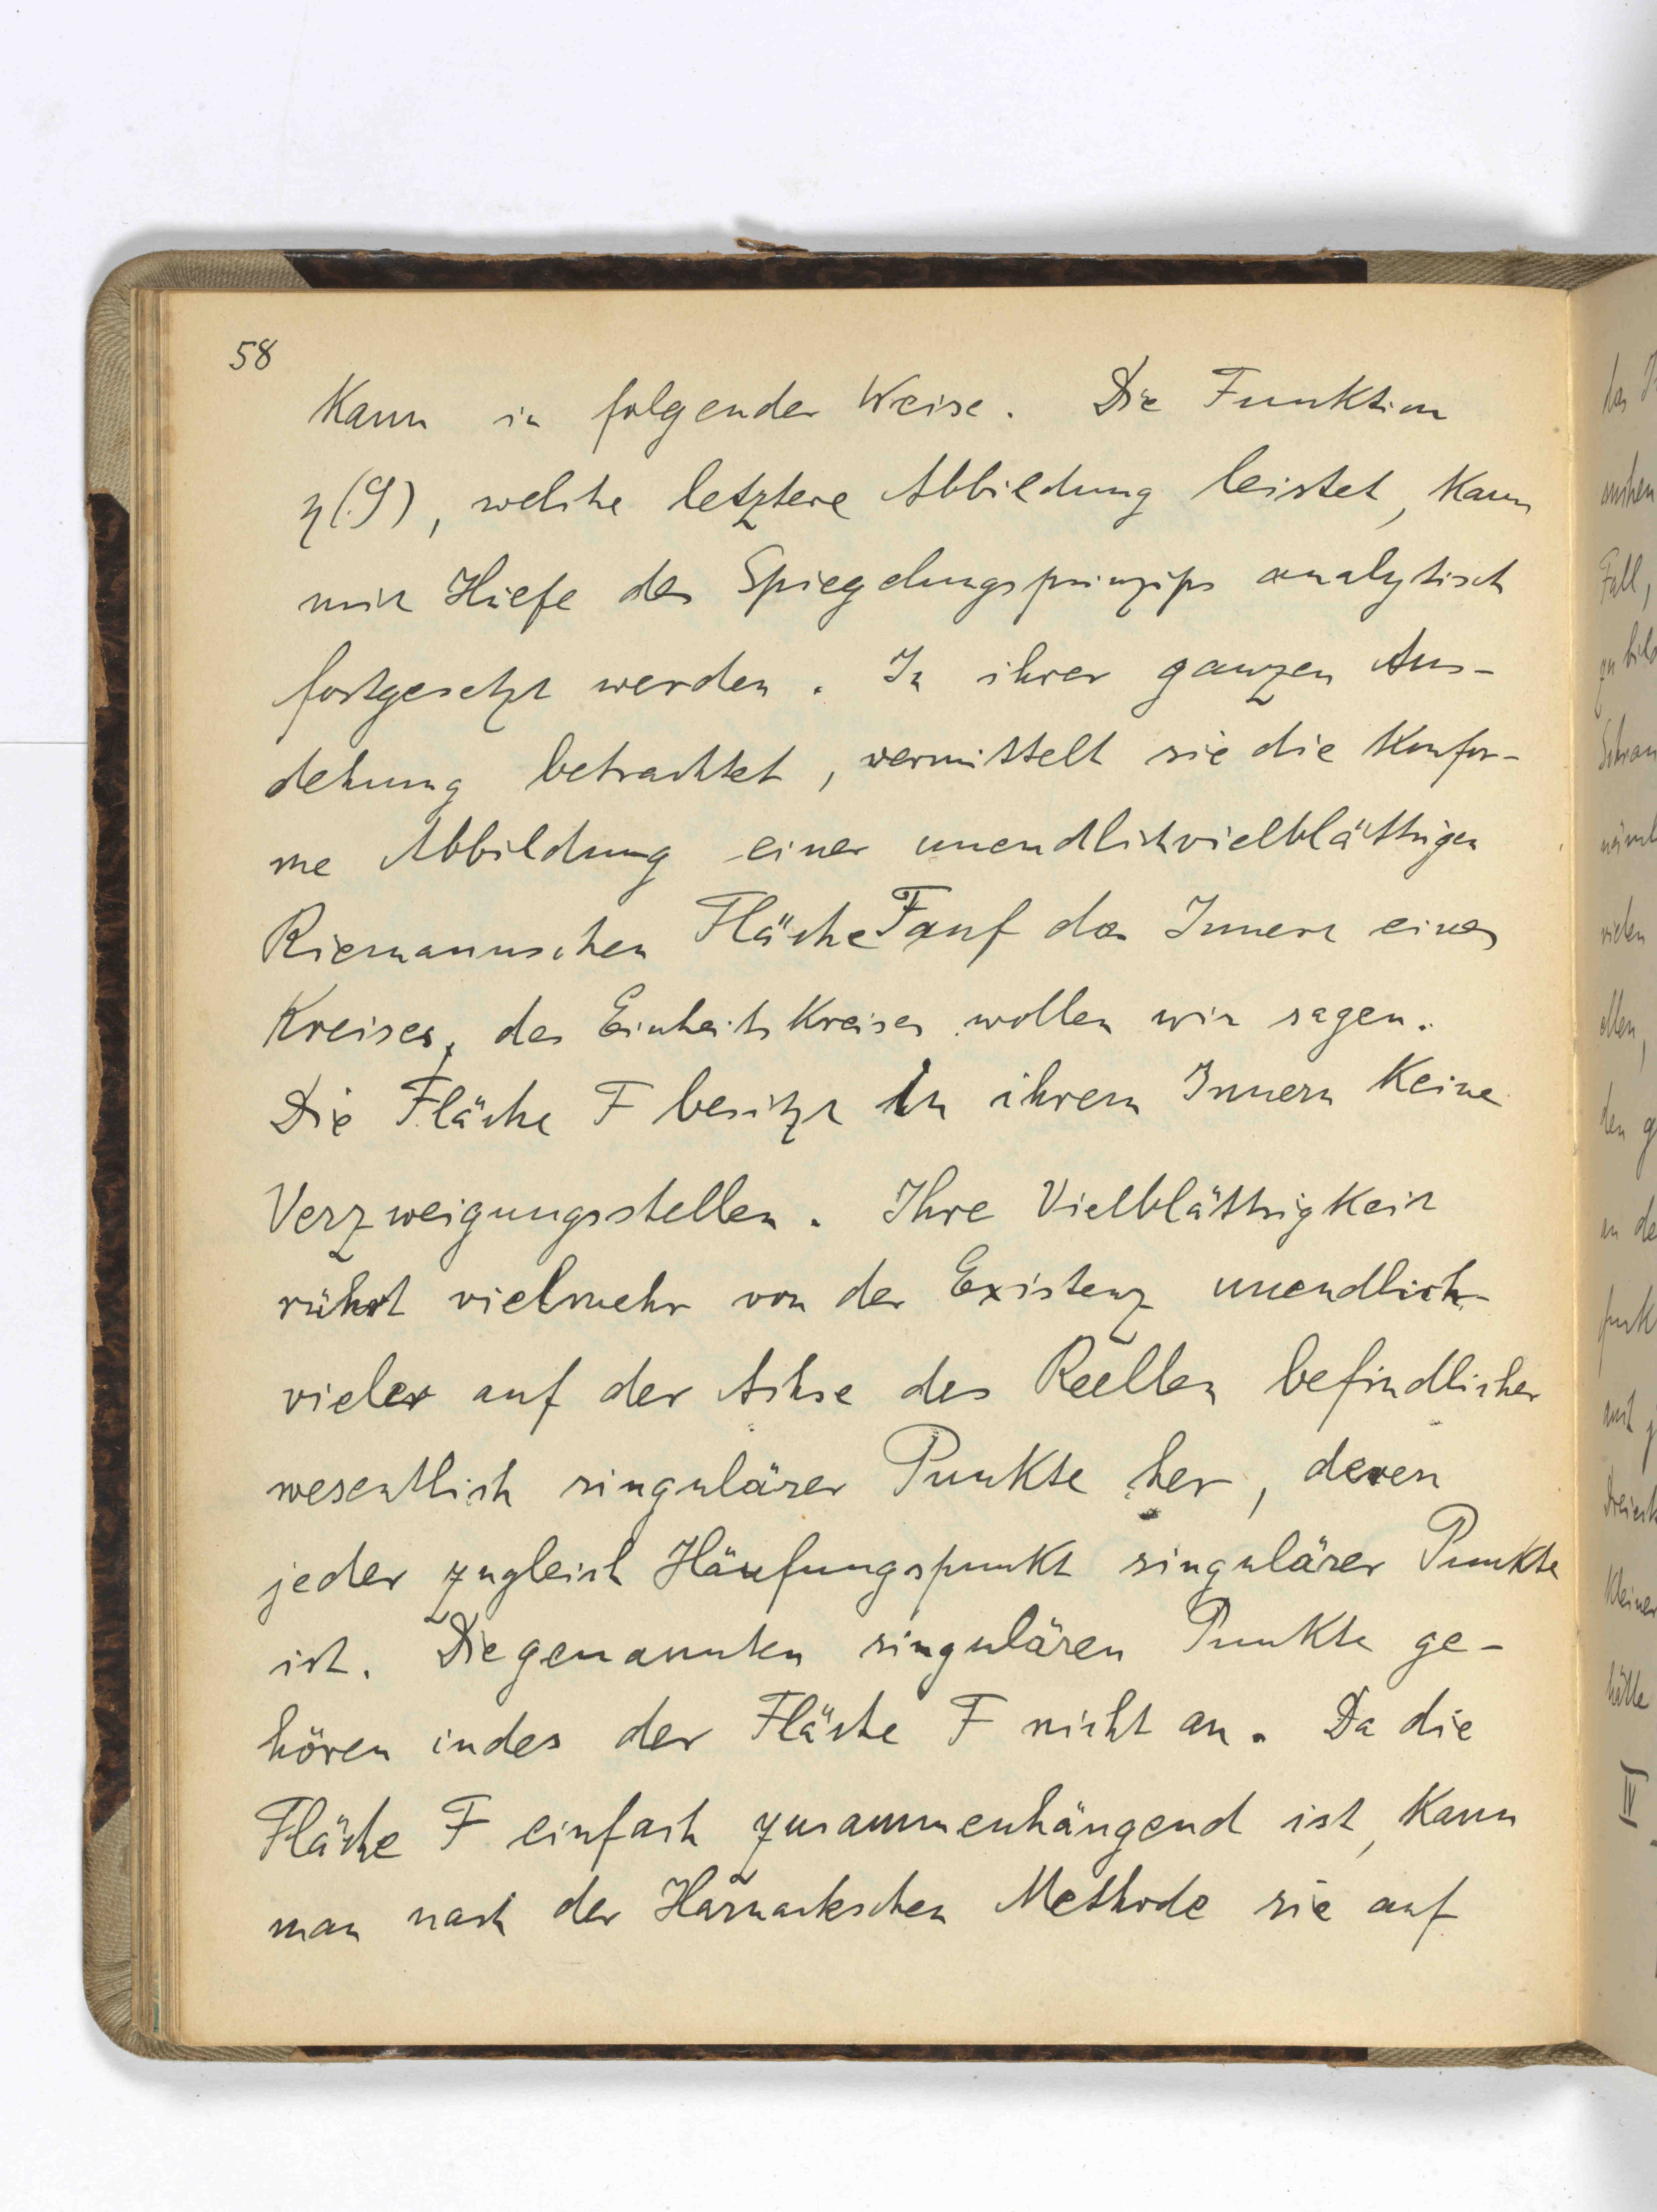 58
Kann in folgender Weise. Die Funktion
η(ζ), welche letztere Abbildung leistet, kann
mit Hilfe des Spiegelungsprinzips analytisch
fortgesetzt werden. In ihrer ganzen Aus-
dehnung betrachtet, vermittelt sie die konfor-
me Abbildung einer unendlichvielblättrigen
Riemannschen Fläche F auf das Innere eines
Kreises, des Einheitskreises wollen wir sagen.
Die Fläche F besitzt in ihrem Innern keine
Verzweigungsstellen. Ihre Vielblättrigkeit
rührt vielmehr von der Existenz unendlich-
vieler auf der Achse des Reellen befindlicher
wesentlich singulärer Punkte her, deren
jeder zugleich Häufungspunkt singulärer Punkte
ist. Die genannten singulären Punkte ge-
hören indes der Fläche F nicht an. Da die
Fläche F einfach zusammenhängend ist, kann
man nach der Harnackschen Methode sie auf
Fall,
IV